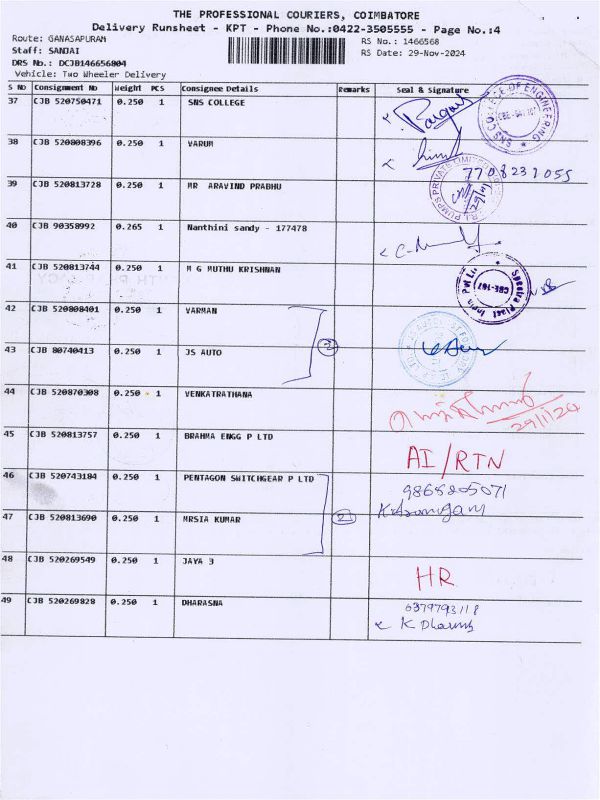 THE PROFESSIONAL COURIERS, COIMBATORE
Delivery Runsheet - KPT - Phone No.:0422-3505555 - Page No.:4
Route: GANASAPURAM
RS No.: 1466568
Staff: SANJAI
RS Date: 29-Nov-2024
DRS No.: DCJB146656804
Vehicle: Two Wheeler Delivery
S No Consignment No Weight PCS Consignee Details Remarks Seal & Signature
37 CJB 520750471 0.250 1 SNS COLLEGE
SNS COLLEGE OF ENGINEERING
38 CJB 520808396 0.250 1 VARUM
7708231055
39 CJB 520813728 0.250 1 MR ARAVIND PRABHU
PUMPS PRIVATE LIMITED
40 CJB 90358992 0.265 1 Nanthini sandy - 177478
41 CJB 520813744 0.250 1 M G MUTHU KRISHNAN
42 CJB 520808401 0.250 1 VARMAN
43 CJB 80740413 0.250 1 JS AUTO
2
44 CJB 520870308 0.250 1 VENKATRATHANA
29/11/24
45 CJB 520813757 0.250 1 BRAHMA ENGG P LTD
AI/RTN
46 CJB 520743184 0.250 1 PENTAGON SWITCHGEAR P LTD
9865205071
47 CJB 520813690 0.250 1 MRSIA KUMAR
2
48 CJB 520269549 0.250 1 JAYA 3
HR
49 CJB 520269828 0.250 1 DHARASNA
6379793118